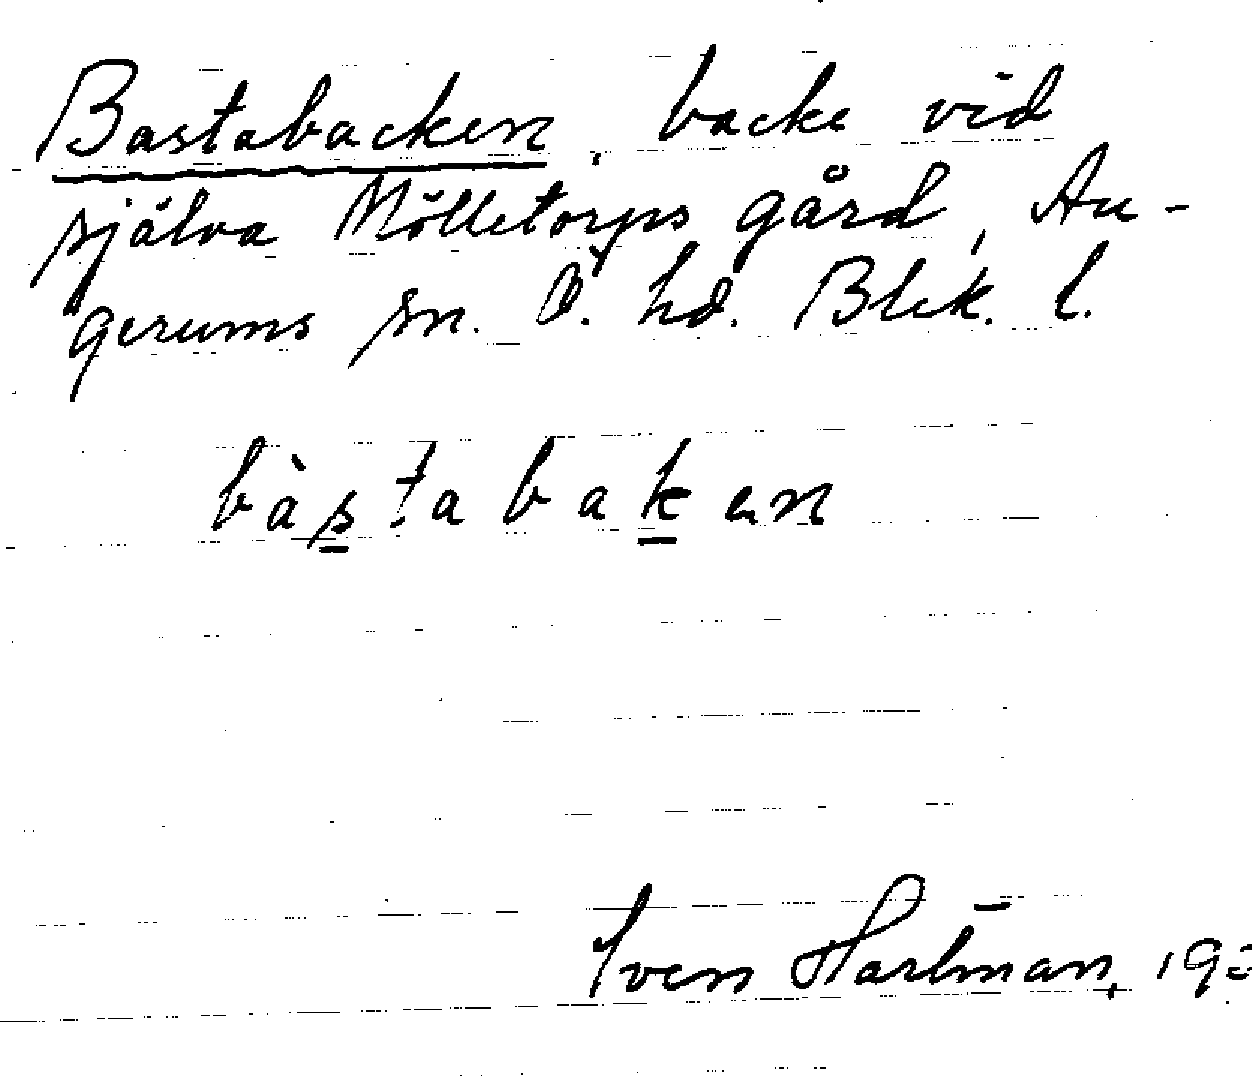 Bastabacken, backe vid
själva Mölletorps gård, Au-
gerums sn. Ö. hd. Blek. l.
bàstabakan
Sven Hartman, 19